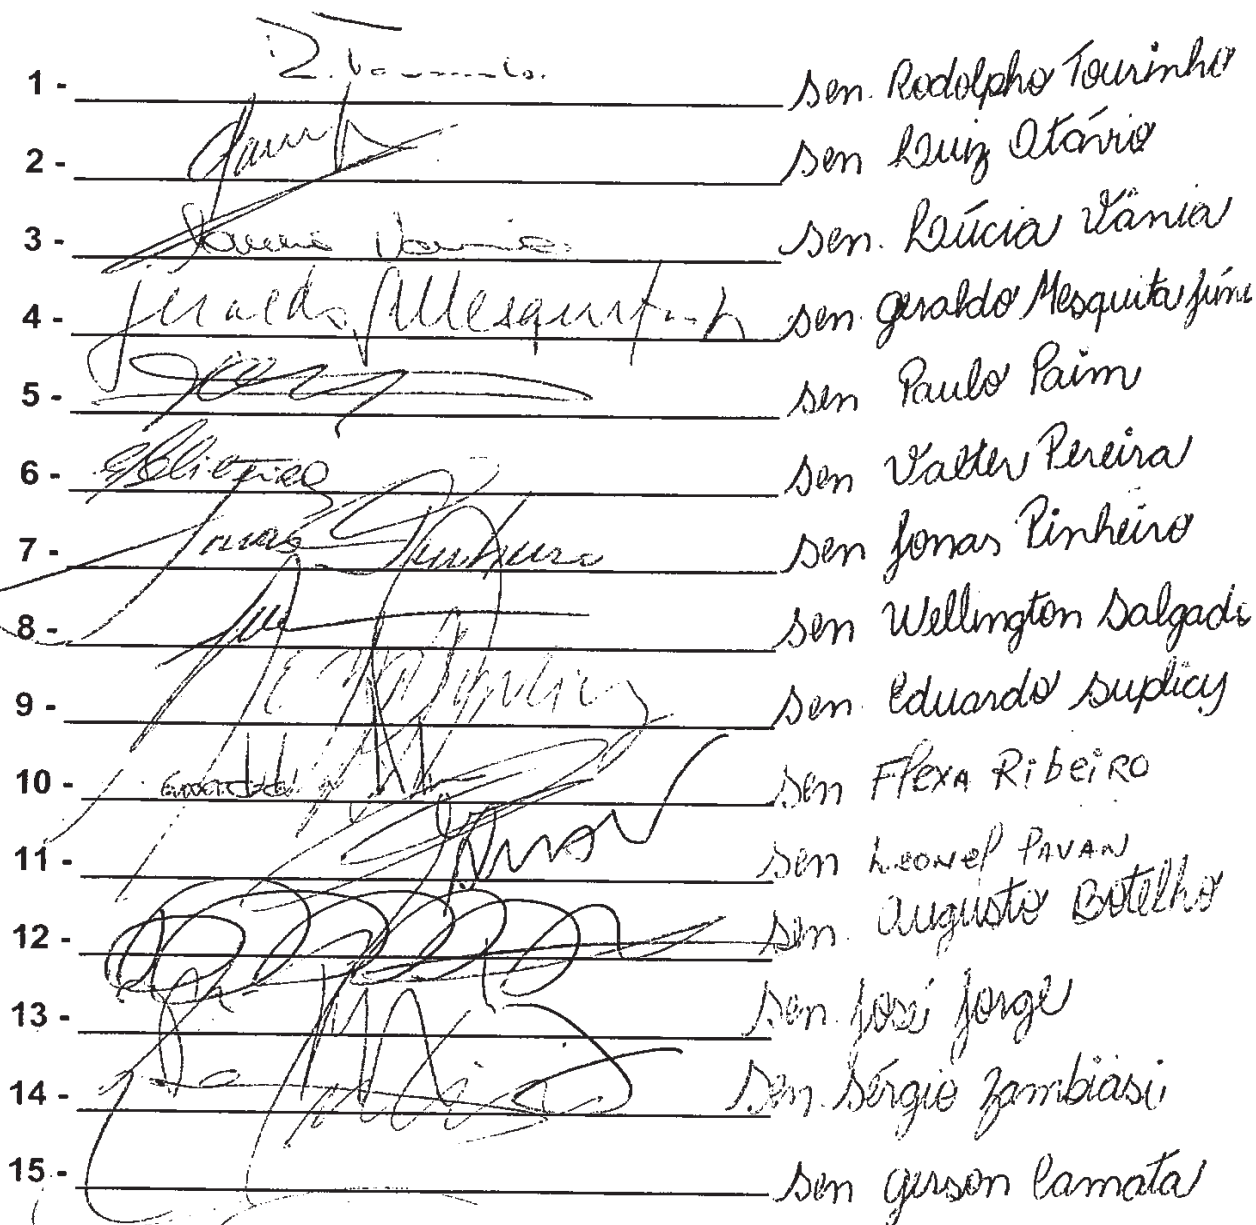 1 - R. Tourinho. sen. Rodolpho Tourinho
2 - sen Luiz Otávio
3 - Lucia Vania sen. Lúcia Vânia
4 - Geraldo Mesquita Jr sen. Geraldo Mesquita Júni
5 - sen Paulo Paim
6 - sen Valter Pereira
7 - Jonas Pinheiro sen Jonas Pinheiro
8 - sen Wellington Salgado
9 - Suplicy sen. Eduardo Suplicy
10 - sen Flexa Ribeiro
11 - sen Leonel Pavan
12 - sen. Augusto Botelho
13 - sen. José Jorge
14 - sen. Sérgio Zambiasi
15 - sen Gerson Camata